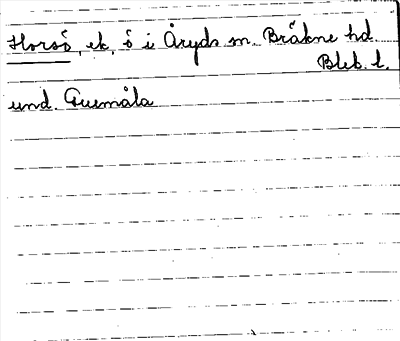 Horsö, ek, ö i Åryds sn. Bräkne hd.
Blek. l.
und. Guemåla